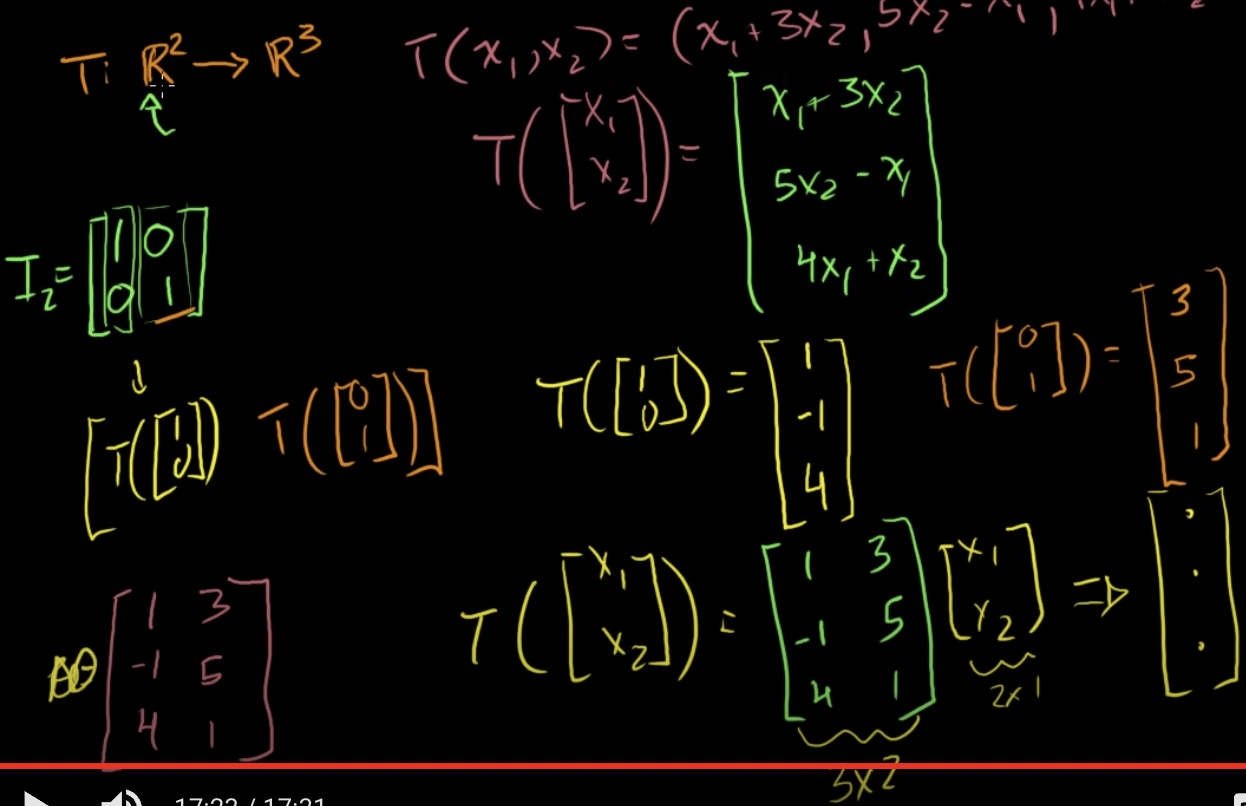 T: ℝ² → ℝ³
T(x₁, x₂) = (x₁ + 3x₂, 5x₂ - x₁,
T([x₁ x₂]) = [x₁ + 3x₂
5x₂ - x₁
4x₁ + x₂]
I₂ = [1 0
0 1]
↓
[T([1 0]) T([0 1])]
T([1 0]) = [1
-1
4]
T([0 1]) = [3
5
1]
[1 3
-1 5
4 1]
T([x₁ x₂]) = [1 3
-1 5
4 1] [x₁
x₂] ⇒ [.
.
.]
3x2
2x1
17:23 / 17:31